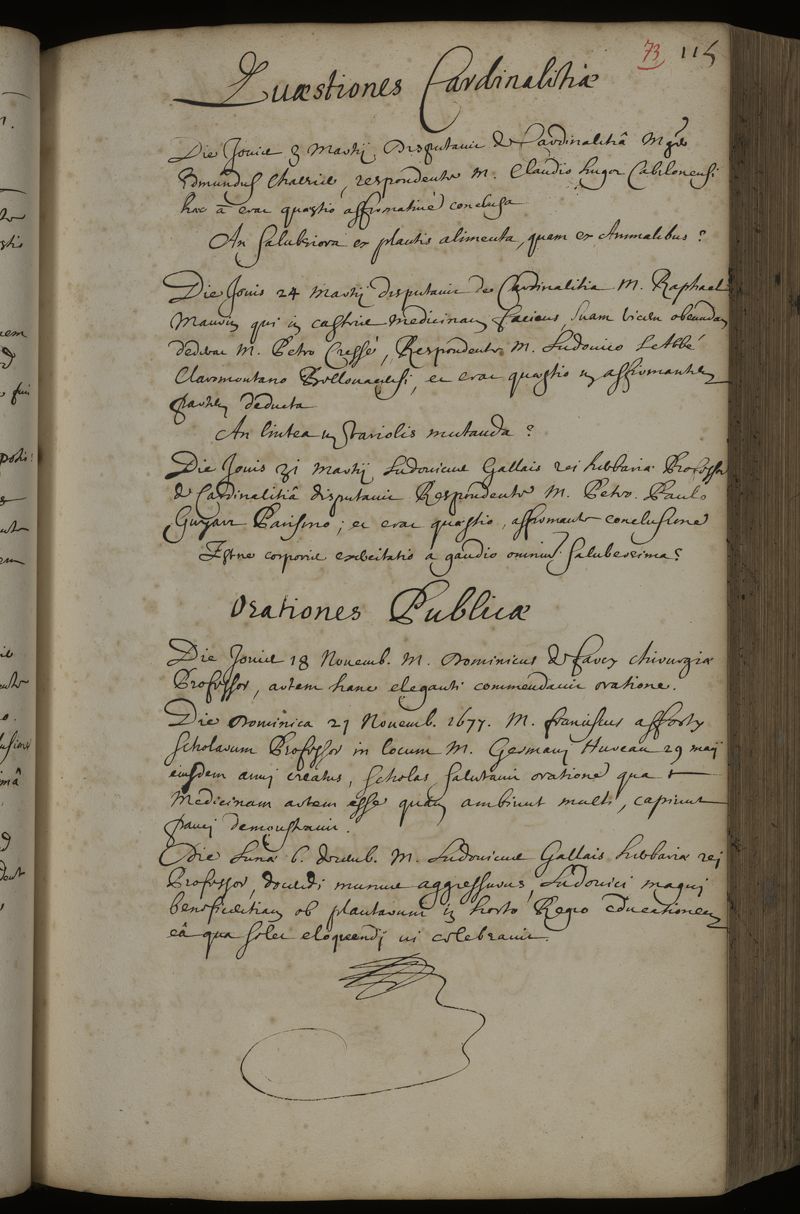 73 115
Quæstiones Cardinalitiæ
Die Jovis 3 Martij Disputavit de Cardinalitiâ Mger
Edmundus Chalvier, respondente M. Claudio Cabilonensi
hæc ā erat quæstio affirmativè conclusa
An salubriora ex plantis alimenta, quam ex Animalibus?
Die Jovis 24 Martij disputavit de Cardinalitia M. Raphael
Mauvin qui in castris medicinam faciens, suam vicem obeundam
dederat M. Petro Cressé, Respondente M. Ludovico LeAbbé
Claromontano Bellovacensi, et erat quæstio in affirmantem
partem deducta
An lintea in variolis mutanda?
Die Jovis 31 Martij Ludovicus Gallais rei herbariæ Professor
de Cardinalitiâ disputavit Respondente M. Petro Paulo
Guyart Parisino; et erat quæstio, affirmante conclusione
Estne corporis exercitatio a gaudio omnium saluberrima?
Orationes Publicæ
Die Jovis 18 Novemb. M. Dominicus de Farcy chirurgiæ
Professor, artem hanc eleganti commendavit oratione.
Die Dominica 21 Novemb. 1677. M. franciscus afforty
scholarum Professor in locum M. Germani Hureau 29 maij
eiusdem anni creatus, scholas salutavit oratione qua
Medicinam artem esse quam ambiunt multi, capiunt
pauci demonstravit.
Die Lunæ 6. decemb. M. Ludovicus Gallais herbariæ rei
Professor, docendi munus aggressurus, Ludovici magni
beneficentiam ob plantarum in horto Regio educationem
eâ qua solet eloquendi vi celebravit.